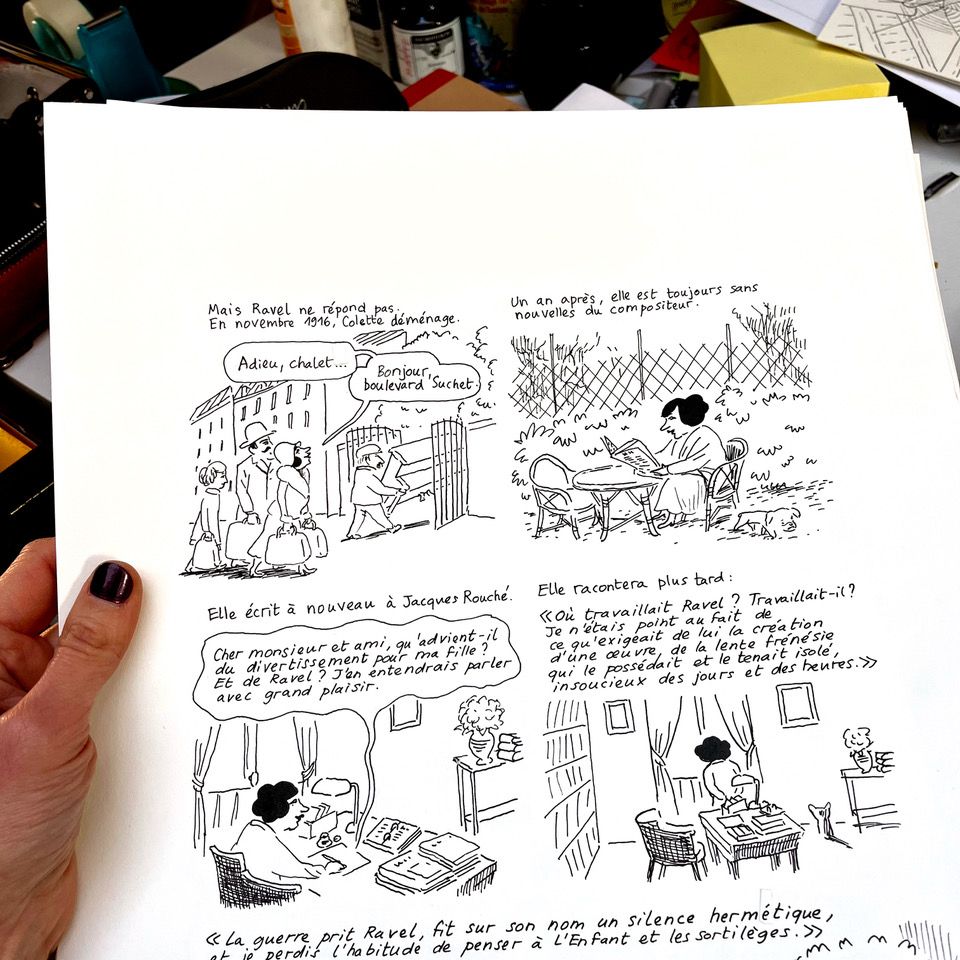 Mais Ravel ne répond pas.
En novembre 1916, Colette déménage.
Adieu, chalet...
Bonjour,
boulevard Suchet
Un an après, elle est toujours sans
nouvelles du compositeur.
Elle écrit à nouveau à Jacques Rouché.
Cher monsieur et ami, qu'advient-il
du divertissement pour ma fille ?
Et de Ravel ? J'en entendrais parler
avec grand plaisir.
Elle racontera plus tard :
«Où travaillait Ravel ? Travaillait-il ?
Je n'étais point au fait de
ce qu'exigeait de lui la création
d'une œuvre, de la lente frénésie
qui le possédait et le tenait isolé,
insoucieux des jours et des heures.»
«La guerre prit Ravel, fit sur son nom un silence hermétique,
et je perdis l'habitude de penser à L'Enfant et les sortilèges.»